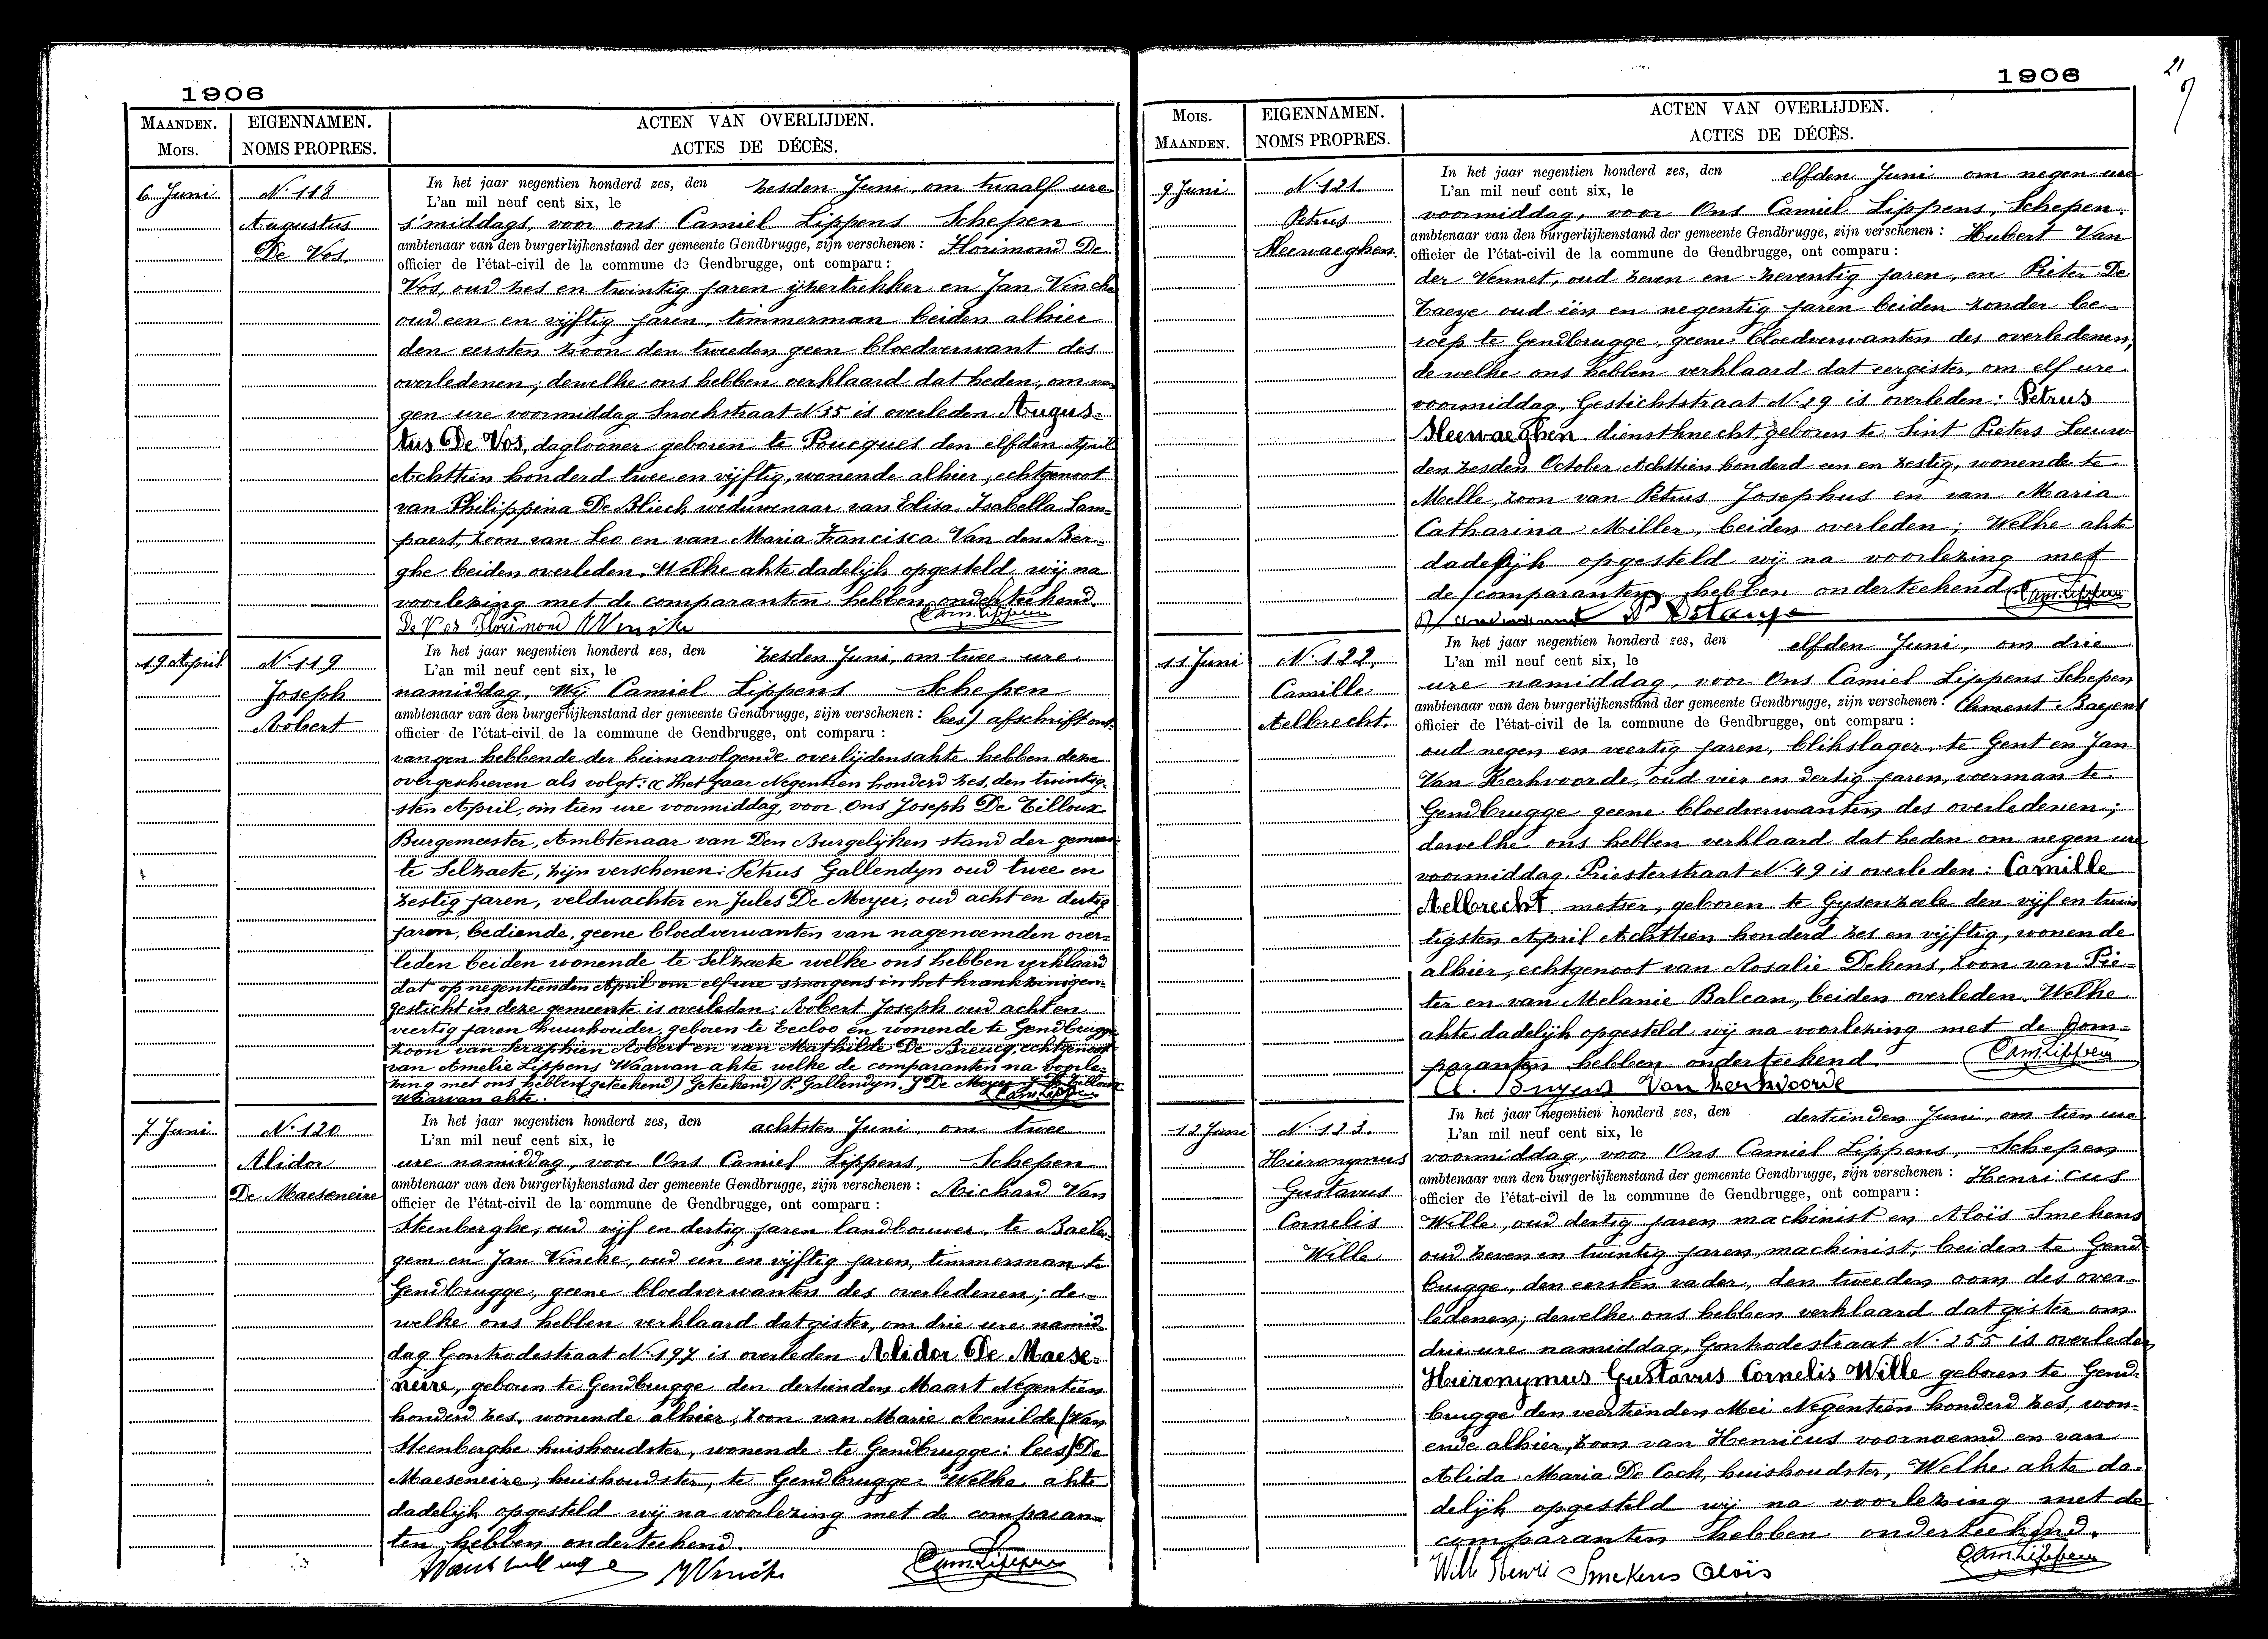 1906
MAANDEN.
MOIS.
EIGENNAMEN.
NOMS PROPRES.
ACTEN VAN OVERLIJDEN.
ACTES DE DÉCÈS.
6 Juni
N. 118
Augustus
De Vos.
In het jaar negentien honderd zes, den zesden Juni, om twaalf ure
L'an mil neuf cent six, le
s'middags, voor ons Camiel Lippens Schepen
ambtenaar van den burgerlijkenstand der gemeente Gendbrugge, zijn verschenen : Florimond De
officier de l'état-civil de la commune de Gendbrugge, ont comparu :
Vos, oud zes en twintig jaren ijzertrekker en Jan Vincke
oud een en vijftig jaren, timmerman beiden alhier
den eersten zoon den tweeden geen bloedverwant des
overledenen; dewelke ons hebben verklaard dat heden, om ne-
gen ure voormiddag Snoekstraat N. 35 is overleden Augus-
tus De Vos, daglooner geboren te Poucques den elfden April
Achttien honderd twee en vijftig, wonende alhier, echtgenoot
van Philippina De Blieck weduwenaar van Elisa Isabella Lam-
paert, zoon van Leo en van Maria Francisca Van den Ber-
ghe beiden overleden. Welke akte dadelijk opgesteld wij na
voorlezing met de comparanten hebben onderteekend.
De Vos Florimond J Vincke Cam. Lippens
19 April
N. 119
Joseph
Robert
In het jaar negentien honderd zes, den zesden Juni, om twee ure
L'an mil neuf cent six, le
namiddag, Wij Camiel Lippens Schepen
ambtenaar van den burgerlijkenstand der gemeente Gendbrugge, zijn verschenen : lees) afschrift ont-
officier de l'état-civil de la commune de Gendbrugge, ont comparu :
vangen hebbende der hiernavolgende overlijdensakte hebben deze
overgeschreven als volgt: « Het jaar Negentien honderd zes, den twintig-
sten April, om tien ure voormiddag, voor Ons Joseph De Tilloux
Burgemeester, Ambtenaar van Den Burgelijken stand der gemeen-
te Selzaete, zijn verschenen: Petrus Gallendyn oud twee en
zestig jaren, veldwachter en Jules De Meyer, oud acht en dertig
jaren, bediende, geene bloedverwanten van nagenoemden over-
leden beiden wonende te Selzaete welke ons hebben verklaard
dat op negentienden April om elf ure s'morgens in het krankzinigen-
gesticht in deze gemeente is overleden: Robert Joseph oud acht en
veertig jaren huurhouder, geboren te Eecloo en wonende te Gendbrugge
zoon van Seraphien Robert en van Mathilde De Breucq, echtgenoot
van Amelie Lippens Waarvan akte welke de comparanten na voorle-
zing met ons hebben (geteekend) Geteekend) P. Gallendyn. J De Meyer J De Tilloux
Waarvan akte. Cam. Lippens
7 Juni
N. 120
Alidor
De Maeseneire
In het jaar negentien honderd zes, den achtsten Juni, om twee
L'an mil neuf cent six, le
ure namiddag, voor Ons Camiel Lippens, Schepen
ambtenaar van den burgerlijkenstand der gemeente Gendbrugge, zijn verschenen : Richard Van
officier de l'état-civil de la commune de Gendbrugge, ont comparu :
Steenberghe, oud vijf en dertig jaren landbouwer, te Baele-
gem en Jan Vincke, oud een en vijftig jaren, timmerman te
Gendbrugge, geene bloedverwanten des overledenen; de-
welke ons hebben verklaard dat gister, om drie ure namid-
dag Gontrodestraat N. 197 is overleden Alidor De Maese-
neire, geboren te Gendbrugge den dertienden Maart Negentien
honderd zes, wonende alhier, zoon van Marie Renilde (Van
Steenberghe huishoudster, wonende te Gendbrugge: lees) De
Maeseneire, huishoudster, te Gendbrugge Welke akte
dadelijk opgesteld wij na voorlezing met de comparan-
ten hebben onderteekend.
J Vincke Cam. Lippens
1906
21
MOIS.
MAANDEN.
EIGENNAMEN.
NOMS PROPRES.
ACTEN VAN OVERLIJDEN.
ACTES DE DÉCÈS.
9 Juni
N. 121
Petrus
Sleewaeghen.
In het jaar negentien honderd zes, den elfden Juni om negen ure
L'an mil neuf cent six, le
voormiddag, voor Ons Camiel Lippens, Schepen
ambtenaar van den burgerlijkenstand der gemeente Gendbrugge, zijn verschenen : Hubert Van
officier de l'état-civil de la commune de Gendbrugge, ont comparu :
der Vennet, oud zeven en zeventig jaren, en Pieter De
Taeye oud één en negentig jaren beiden zonder be-
roep te Gendbrugge, geene bloedverwanten des overledenen,
de welke ons hebben verklaard dat eergister, om elf ure
voormiddag, Gestichtstraat N. 29 is overleden: Petrus
Sleewaeghen dienstknecht, geboren te Sint Pieters Leeuw
den zesden October Achttien honderd een en zestig, wonende te
Melle, zoon van Petrus Josephus en van Maria
Catharina Miller, beiden overleden; Welke akte
dadelijk opgesteld wij na voorlezing met
de comparanten hebben onderteekend Cam. Lippens
11 Juni
N. 122.
Camille
Aelbrecht.
In het jaar negentien honderd zes, den elfden Juni, om drie
L'an mil neuf cent six, le
ure namiddag, voor Ons Camiel Lippens Schepen
ambtenaar van den burgerlijkenstand der gemeente Gendbrugge, zijn verschenen : Clement Baeyens
officier de l'état-civil de la commune de Gendbrugge, ont comparu :
oud negen en veertig jaren, blikslager, te Gent en Jan
Van Kerkvoorde, oud vier en dertig jaren, voerman te
Gendbrugge geene bloedverwanten des overledenen;
dewelke ons hebben verklaard dat heden om negen ure
voormiddag, Priesterstraat N. 49 is overleden: Camille
Aelbrecht metser, geboren te Gysenzeele den vijf en twin-
tigsten April Achttien honderd zes en vijftig, wonende
alhier, echtgenoot van Rosalie Dekens, zoon van Pie-
ter en van Melanie Balcan, beiden overleden. Welke
akte dadelijk opgesteld wij na voorlezing met de com-
paranten hebben onderteekend. Cam. Lippens
Van Kerkvoorde
12 Juni
N. 123.
Hieronymus
Gustavus
Cornelis
Wille
In het jaar negentien honderd zes, den dertienden Juni, om tien ure
L'an mil neuf cent six, le
voormiddag, voor Ons Camiel Lippens, Schepen
ambtenaar van den burgerlijkenstand der gemeente Gendbrugge, zijn verschenen : Henricus
officier de l'état-civil de la commune de Gendbrugge, ont comparu :
Wille, oud dertig jaren machinist en Aloïs Smekens
oud zeven en twintig jaren, machinist, beiden te Gend-
brugge, den eersten vader, den tweeden oom des over-
ledenen; dewelke ons hebben verklaard dat gister om
drie ure namiddag, Gontrodestraat N. 255 is overleden
Hieronymus Gustavus Cornelis Wille geboren te Gend-
brugge den veertienden Mei Negentien honderd zes, won-
ende alhier, zoon van Henricus voornoemd en van
Alida Maria De Cock, huishoudster, Welke akte da-
delijk opgesteld wij na voorlezing met de
comparanten hebben onderteekend.
Wille Henri Smekens Aloïs Cam. Lippens